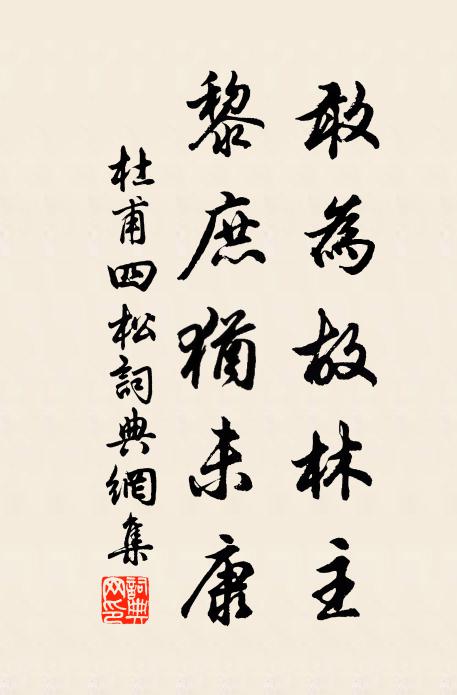 敢為故林主
黎庶猶未康
杜甫四松詞典網集
詞典網印